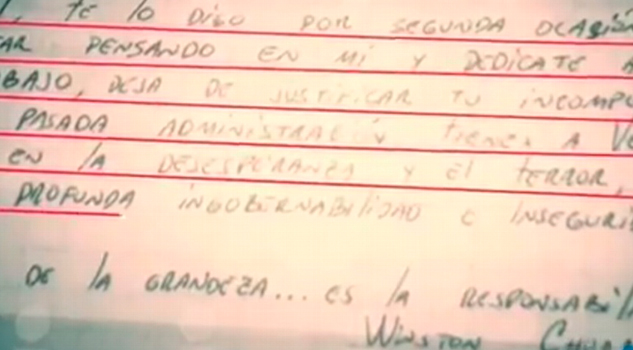 TE LO DIGO POR SEGUNDA OCASIÓN
PENSANDO EN MI Y DEDICATE A
BAJO, DEJA DE JUSTIFICAR TU INCOMPE
PASADA ADMINISTRACIÓN TIENEN A VE
EN LA DESESPERANZA Y El TERROR,
PROFUNDA INGOBERNABILIDAD E INSEGURI
DE LA GRANDEZA... ES LA RESPONSABIL
WINSTON CHUR